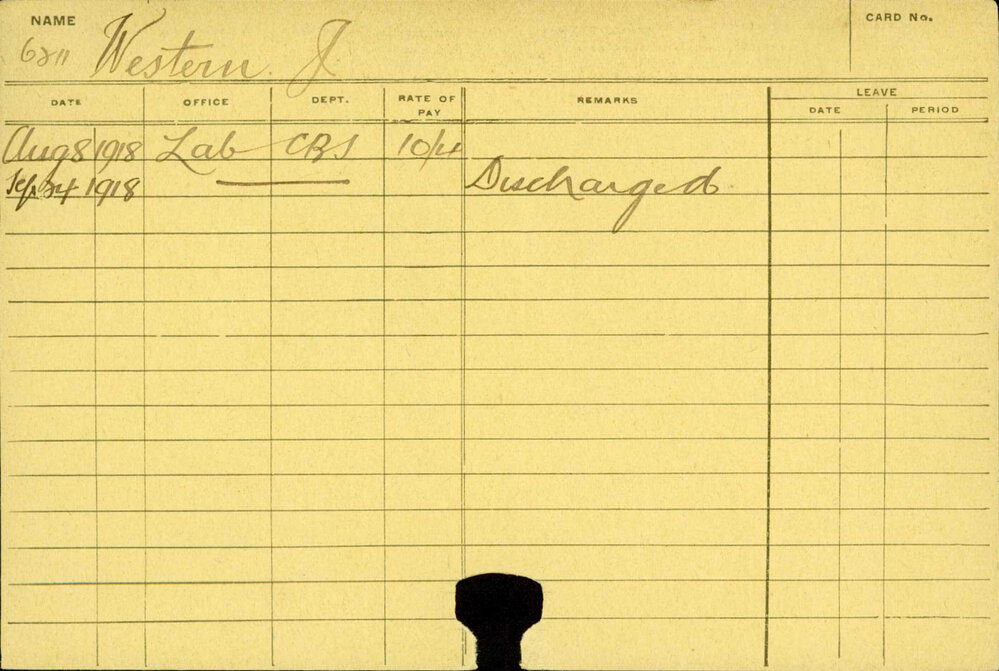 NAME CARD No.
6211 Western. J.
LEAVE
DATE OFFICE DEPT. RATE OF PAY REMARKS DATE PERIOD
Aug 8 1918 Lab CBS 10/4
Sep 24 1918 Discharged